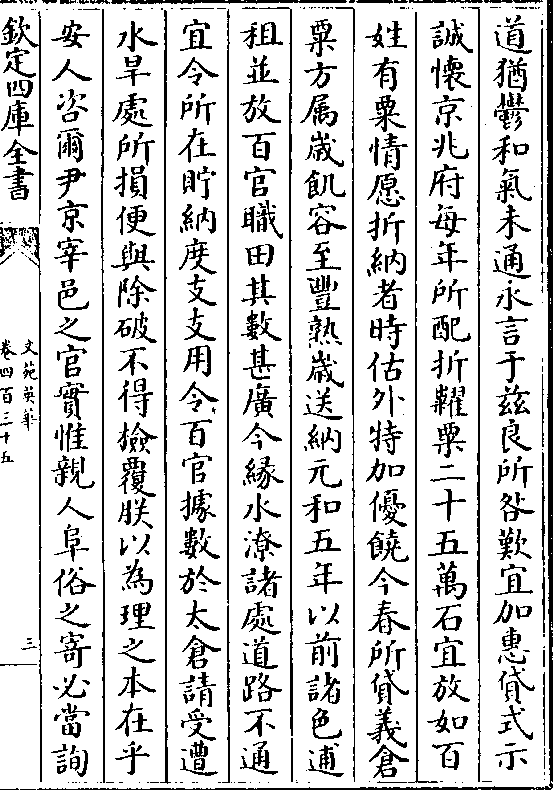 道猶鬱和氣未通永言于兹良所咎歎宜加惠貸式示
誠懷京兆府每年所配折糴粟二十五萬石宜放如百
姓有粟情愿折納者時估外特加優饒今春所貸義倉
粟方属嵗飢容至豐熟嵗送納元和五年以前諸色逋
租並放百官職田其數甚廣今緣水潦諸處道路不通
宜令所在貯納度支支用令百官據數於太倉請受遭
水旱處所損便與除破不得檢覆朕以為理之本在乎
安人咨爾尹京宰邑之官實惟親人阜俗之寄必當詢
欽定四庫全書
文苑英華
卷四百三十五
三